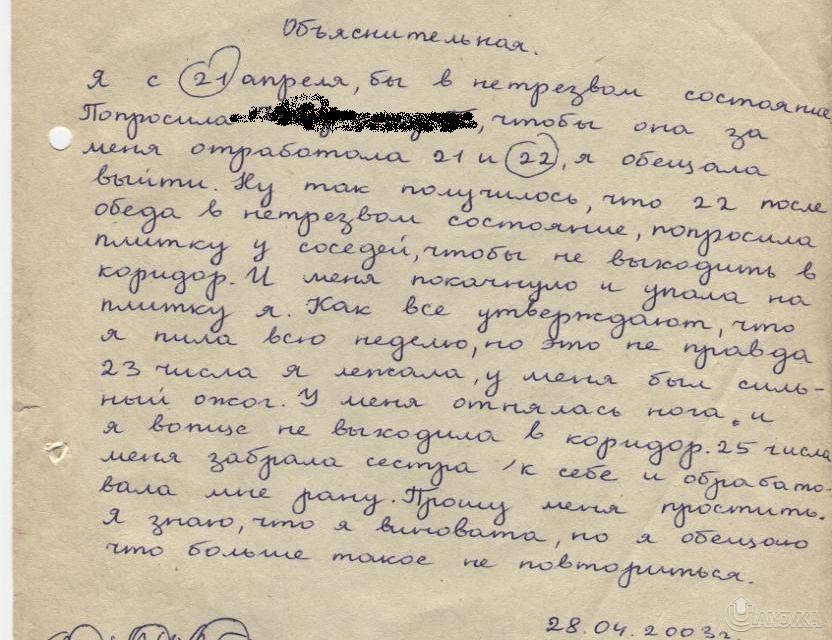 Объяснительная.
Я с 21 апреля, бы в нетрезвом состояние
Попросила , чтобы она за
меня отработала 21 и 22, я обещала
выйти. Ну так получилось, что 22 после
обеда в нетрезвом состояние, попросила
плитку у соседей, чтобы не выходить в
коридор. И меня покачнуло и упала на
плитку я. Как все утверждают, что
я пила всю неделю, но это не правда
23 числа я лежала, у меня был силь-
ный ожог. У меня отнялась нога. и
я вопще не выходила в коридор. 25 числа
меня забрала сестра к себе и обрабато-
вала мне рану. Прошу меня простить.
Я знаю, что я виновата, но я обещаю
что больше такое не повториться.
28.04.2003г
ULANOVKA